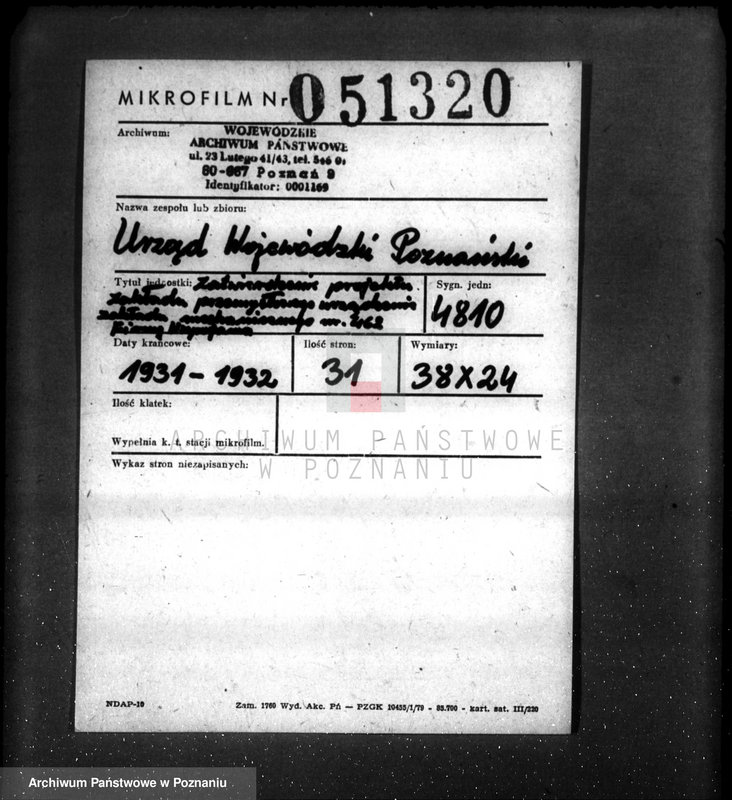 MIKROFILM Nr 051320
Archiwum:
WOJEWÓDZKIE
ARCHIWUM PAŃSTWOWE
ul. 23 Lutego 41/43, tel.
60-967 Poznań 9
Identyfikator: 0001169
Nazwa zespołu lub zbioru:
Urząd Wojewódzki Poznański
Tytuł jednostki: Zatwierdzenie projektu
zakładu przemysłowego urządzenie
zakładu mechanicznego nr. 462
firmy
Sygn. jedn:
4810
Daty krańcowe:
1931 - 1932
Ilość stron:
31
Wymiary:
38x24
Ilość klatek:
Wypełnia k. t. stacji mikrofilm.
Wykaz stron niezapisanych:
ARCHIWUM PAŃSTWOWE
W POZNANIU
NDAP-10
Zam. 1760 Wyd. Akc. Pń — PZGK 10455/I/79 - 85.700 - kart. sat. III/220
Archiwum Państwowe w Poznaniu